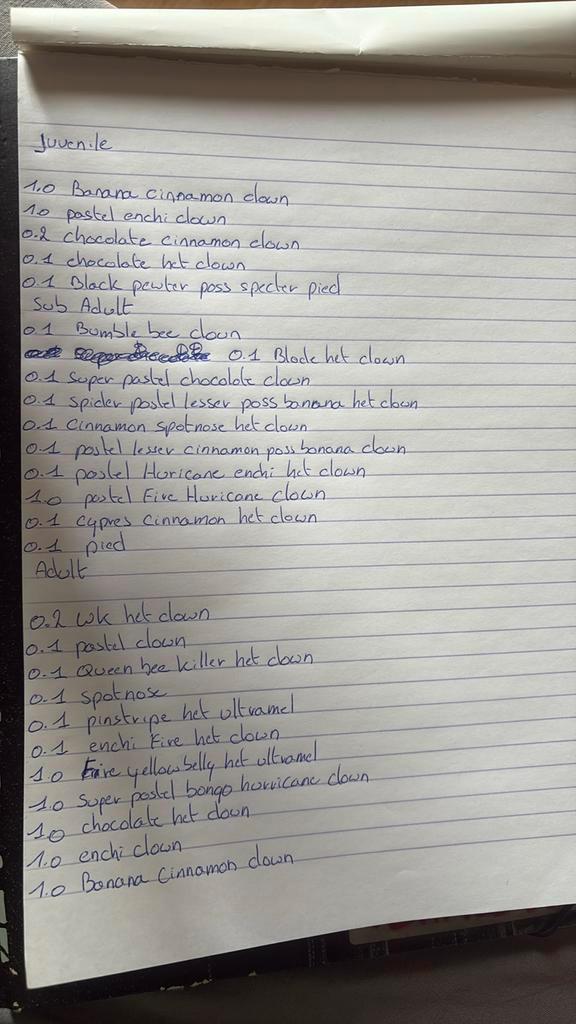 Juvenile
1.0 Banana cinnamon clown
1.0 pastel enchi clown
0.2 chocolate cinnamon clown
0.1 chocolate het clown
0.1 Black pewter poss specter pied
Sub Adult
0.1 Bumble bee clown
0.1 Blade het clown
0.1 super pastel chocolate clown
0.1 spider pastel lesser poss banana het clown
0.1 cinnamon spotnose het clown
0.1 pastel lesser cinnamon poss banana clown
0.1 pastel Huricane enchi het clown
1.0 pastel Fire Huricane clown
0.1 cypres cinnamon het clown
0.1 pied
Adult
0.2 wk het clown
0.1 pastel clown
0.1 Queen bee killer het clown
0.1 spotnose
0.1 pinstripe het ultramel
0.1 enchi Fire het clown
1.0 Fire yellowbelly het ultramel
1.0 super pastel bongo hurricane clown
1.0 chocolate het clown
1.0 enchi clown
1.0 Banana Cinnamon clown